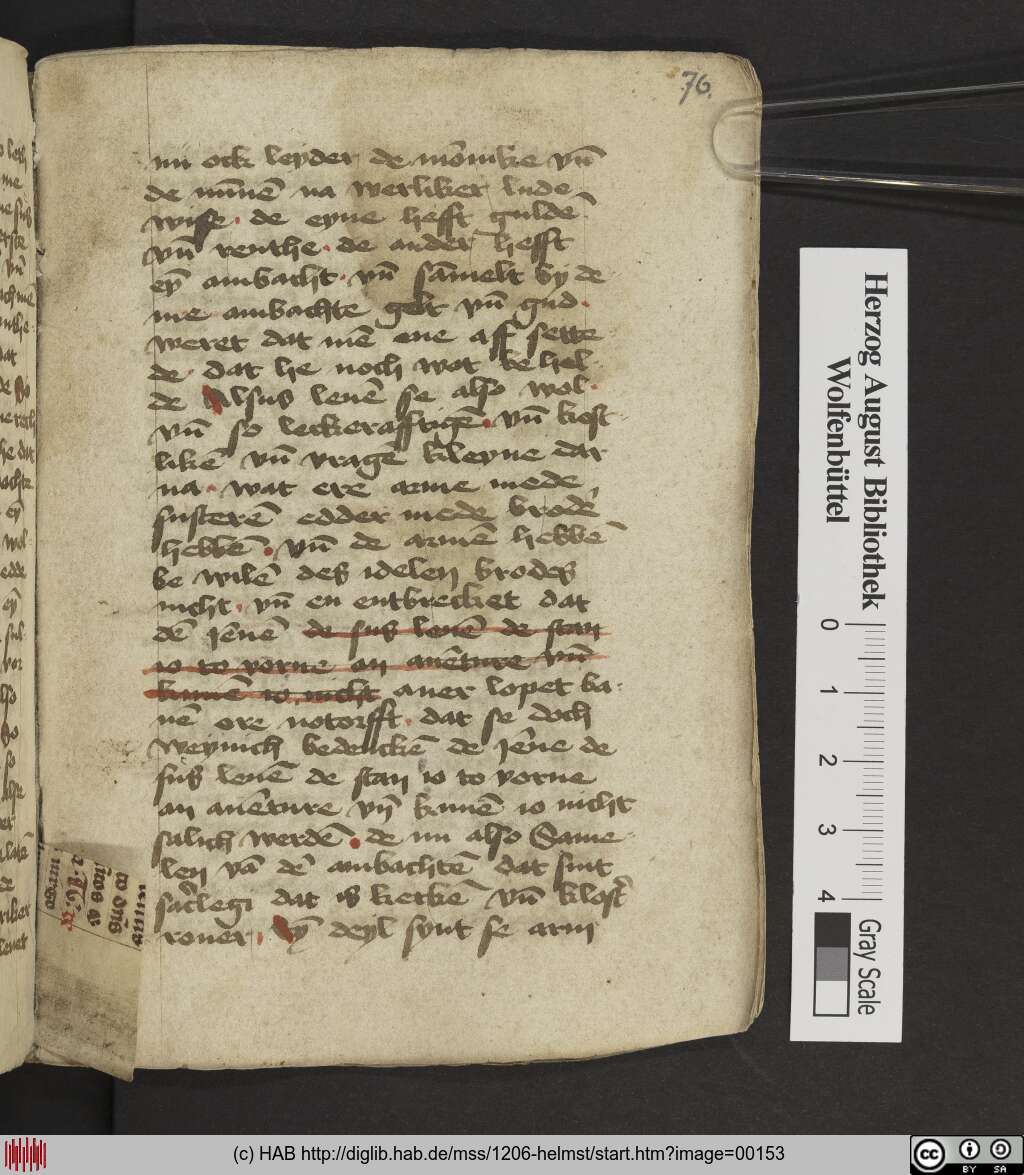 76.
nu ock leyder de mōnike vn̄
de nūnēn na werliker lude
wise · de eyne hefft guldē
vn̄ renthe · de ander hefft
eȳ ambacht · vn̄ sāmelt by de
me ambachte gelt vn̄ gud ·
weret dat mē ene aff sette
de · dat he noch wat be hel
de Alsus leuē se also wol ·
vn̄ so leckerafftigē · vn̄ kost
likē vn̄ vragē kleyne dar
na · wat ere arme mede
susterē edder mede brodē
hebbē · vn̄ de armē hebbē
be wilē des idelen brodes
nicht · vn̄ en entbrecket dat
dē Jēnē de sus leuē de stan
io to vorne an auēture vn̄
kunē io nicht auer lopet ba
uē ore notorfft · dat se doch
weynich bedenckē de Jēne de
sus leuē de stan io to vorne
an auēture vn̄ kunē io nicht
salich werdē · de nu also Same
len vā dē ambachtē dat sint
sac̄legi dat is kerkē vn̄ klost̄
rouer · Eȳ deyl synt se arm
Herzog August Bibliothek
Wolfenbüttel
0 1 2 3 4
Gray Scale
(c) HAB http://diglib.hab.de/mss/1206-helmst/start.htm?image=00153
cc BY SA